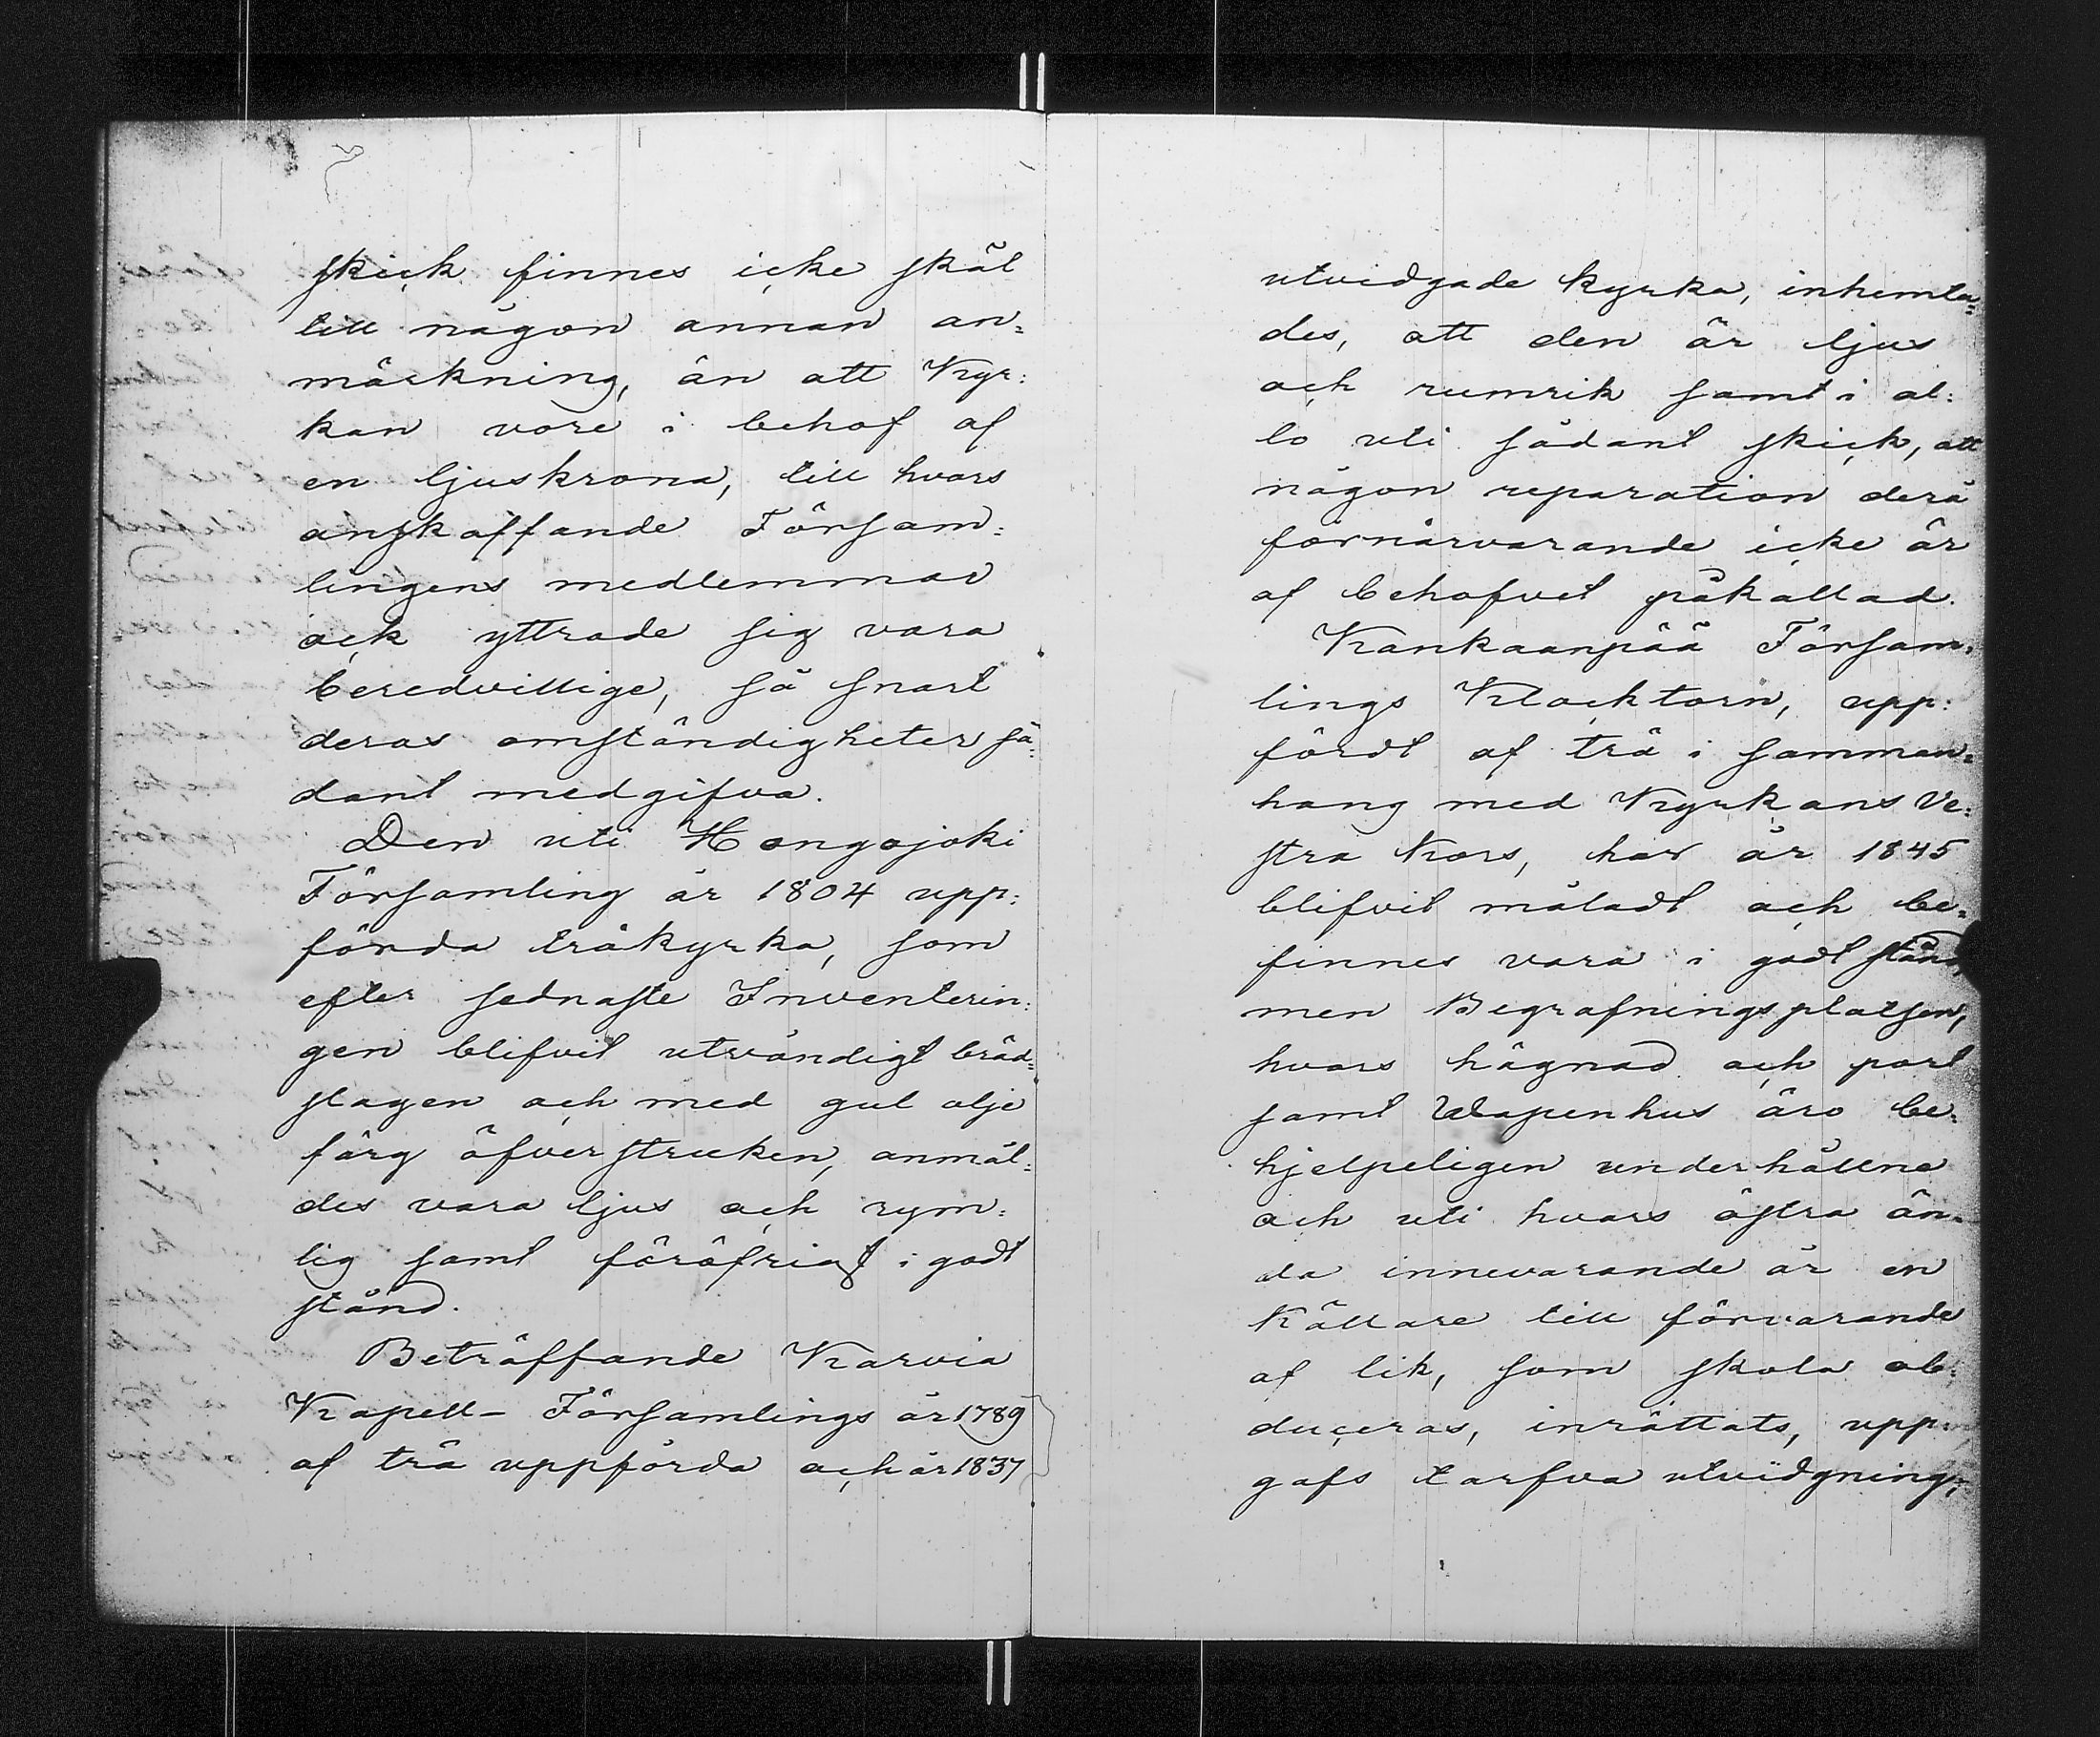 skick finnes icke skäl
till någon annan an=
märkning, än att Kyr=
kan vore i behof af
en ljuskrona, till hvars
anskaffande Försam=
lingens medlemmar
ock yttrade sig vara
beredvillige, så snart
deras omständigheter så=
dant medgifva.
Den uti Hongojoki
Församling år 1804 upp=
förda träkyrka, som
efter sednaste Inventerin=
gen blifvit utvändigt bräd=
slagen och med gul olje
färg öfverstruken, anmäl=
des vara ljus och rym=
lig samt föröfrigt i godt
stånd.
Beträffande Karvia
Kapell- Församlings år 1789
af trä uppförda och år 1837
utvidgade kyrka, inhemta=
des, att den är ljus
och rumrik samt i al=
lo uti sådant skick, att
någon reparation derå
förnärvarande icke är
af behofvet påkallad.
Kankaanpää Försam=
lings Klocktorn, upp=
fördt af trä i samman=
hang med Kyrkans Ve=
stra Kors, har år 1845
blifvit måladt och be=
finnes vara i godt stånd,
men Begrafningsplatsen,
hvars hägnad och port
samt Wapenhus äro be=
hjelpeligen underhållne
och uti hvars östra än=
da innevarande år en
Källare till förvarande
af lik, som skola ob=
duceras, inrättats, upp=
gafs tarfva utvidgning,